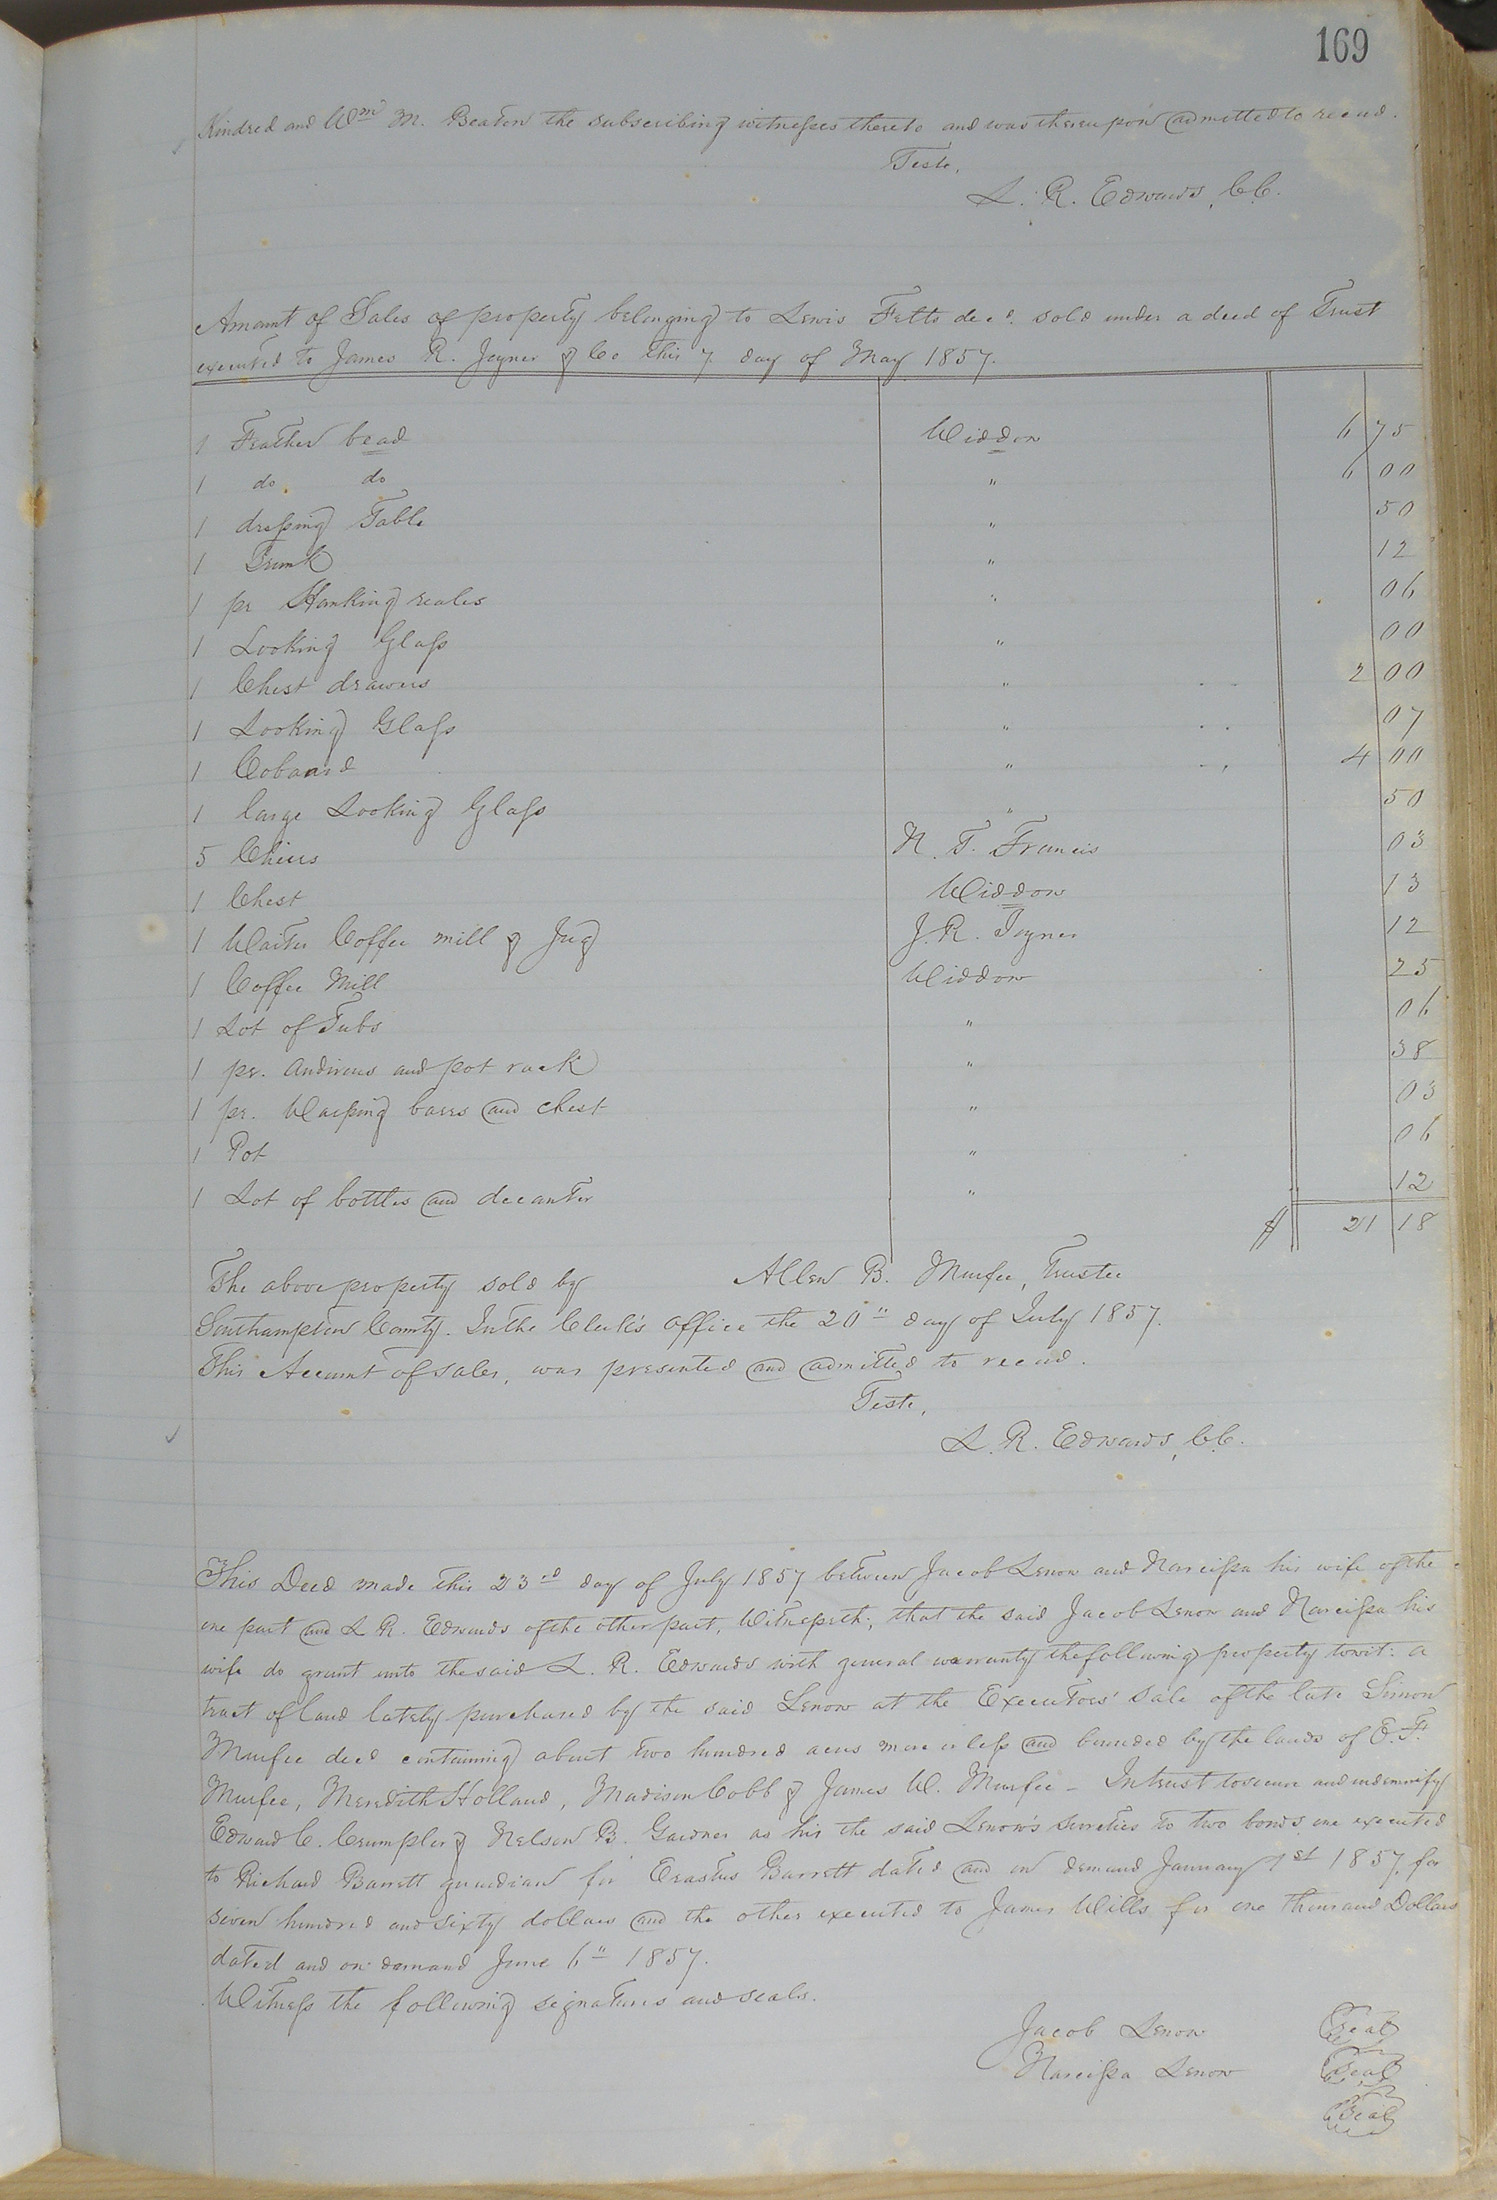 169
Kindred and Wm M. Beaton the subscribing witnesses thereto and was thereupon admitted to record.
Teste,
L. R. Edwards, C.C.
Amount of Sales of property belonging to Lewis Felts decd. sold under a deed of Trust
executed to James R. Joyner & Co this 7 day of May 1857.
1 Feather bead Widdow 6 75
1 do do " 6 00
1 dressing Table " 50
1 Trunk " 12
1 pr " 06
1 Looking Glass " 00
1 Chest drawers " 2 00
1 Looking Glass " 07
1 Cobaard " 4 00
1 large Looking Glass " 50
5 Chiers N. T. Francis 03
1 Chest Widdow 13
1 Waiter Coffee mill & Jug J. R. Joyner 12
1 Coffee Mill Widdow 25
1 Lot of Tubs " 06
1 pr. Andirons and pot rack " 38
1 pr. Warping bares and chest " 03
1 Pot " 06
1 Lot of bottles and decanter " 12
$ 21 18
The above property sold by Allen B. Murfee, Trustee
Southampton County. In the Clerk's office the 20" day of July 1857.
This Account of sales, was presented and admitted to record.
Teste,
L. R. Edwards, C.C.
This Deed made this 23rd day of July 1857 between Jacob Lenow and Narcissa his wife of the
one part and L R. Edwards of the other part, Witnesseth; that the said Jacob Lenow and Narcissa his
wife do grant unto the said L. R. Edwards with general warranty the following property towit: a
tract of land lately purchased by the said Lenow at the Executors' sale of the late Simon
Murfee decd containing about two hundred acres more or less and bounded by the lands of E. F.
Murfee, Meredith Holland, Madison Cobb & James W. Murfee - In trust to secure and indemnify
Edward C. Crumpler & Nelson B. Gardner as his the said Lenow's sureties to two bonds one executed
to Richard Barrett guardian for Erastus Barrett dated and on demand January 1st 1857, for
seven hundred and sixty dollars and the other executed to James Wills for one thousand Dollars
dated and on demand June 6" 1857.
Witness the following signatures and seals.
Jacob Lenow Seal
Narcissa Lenow Seal
Seal